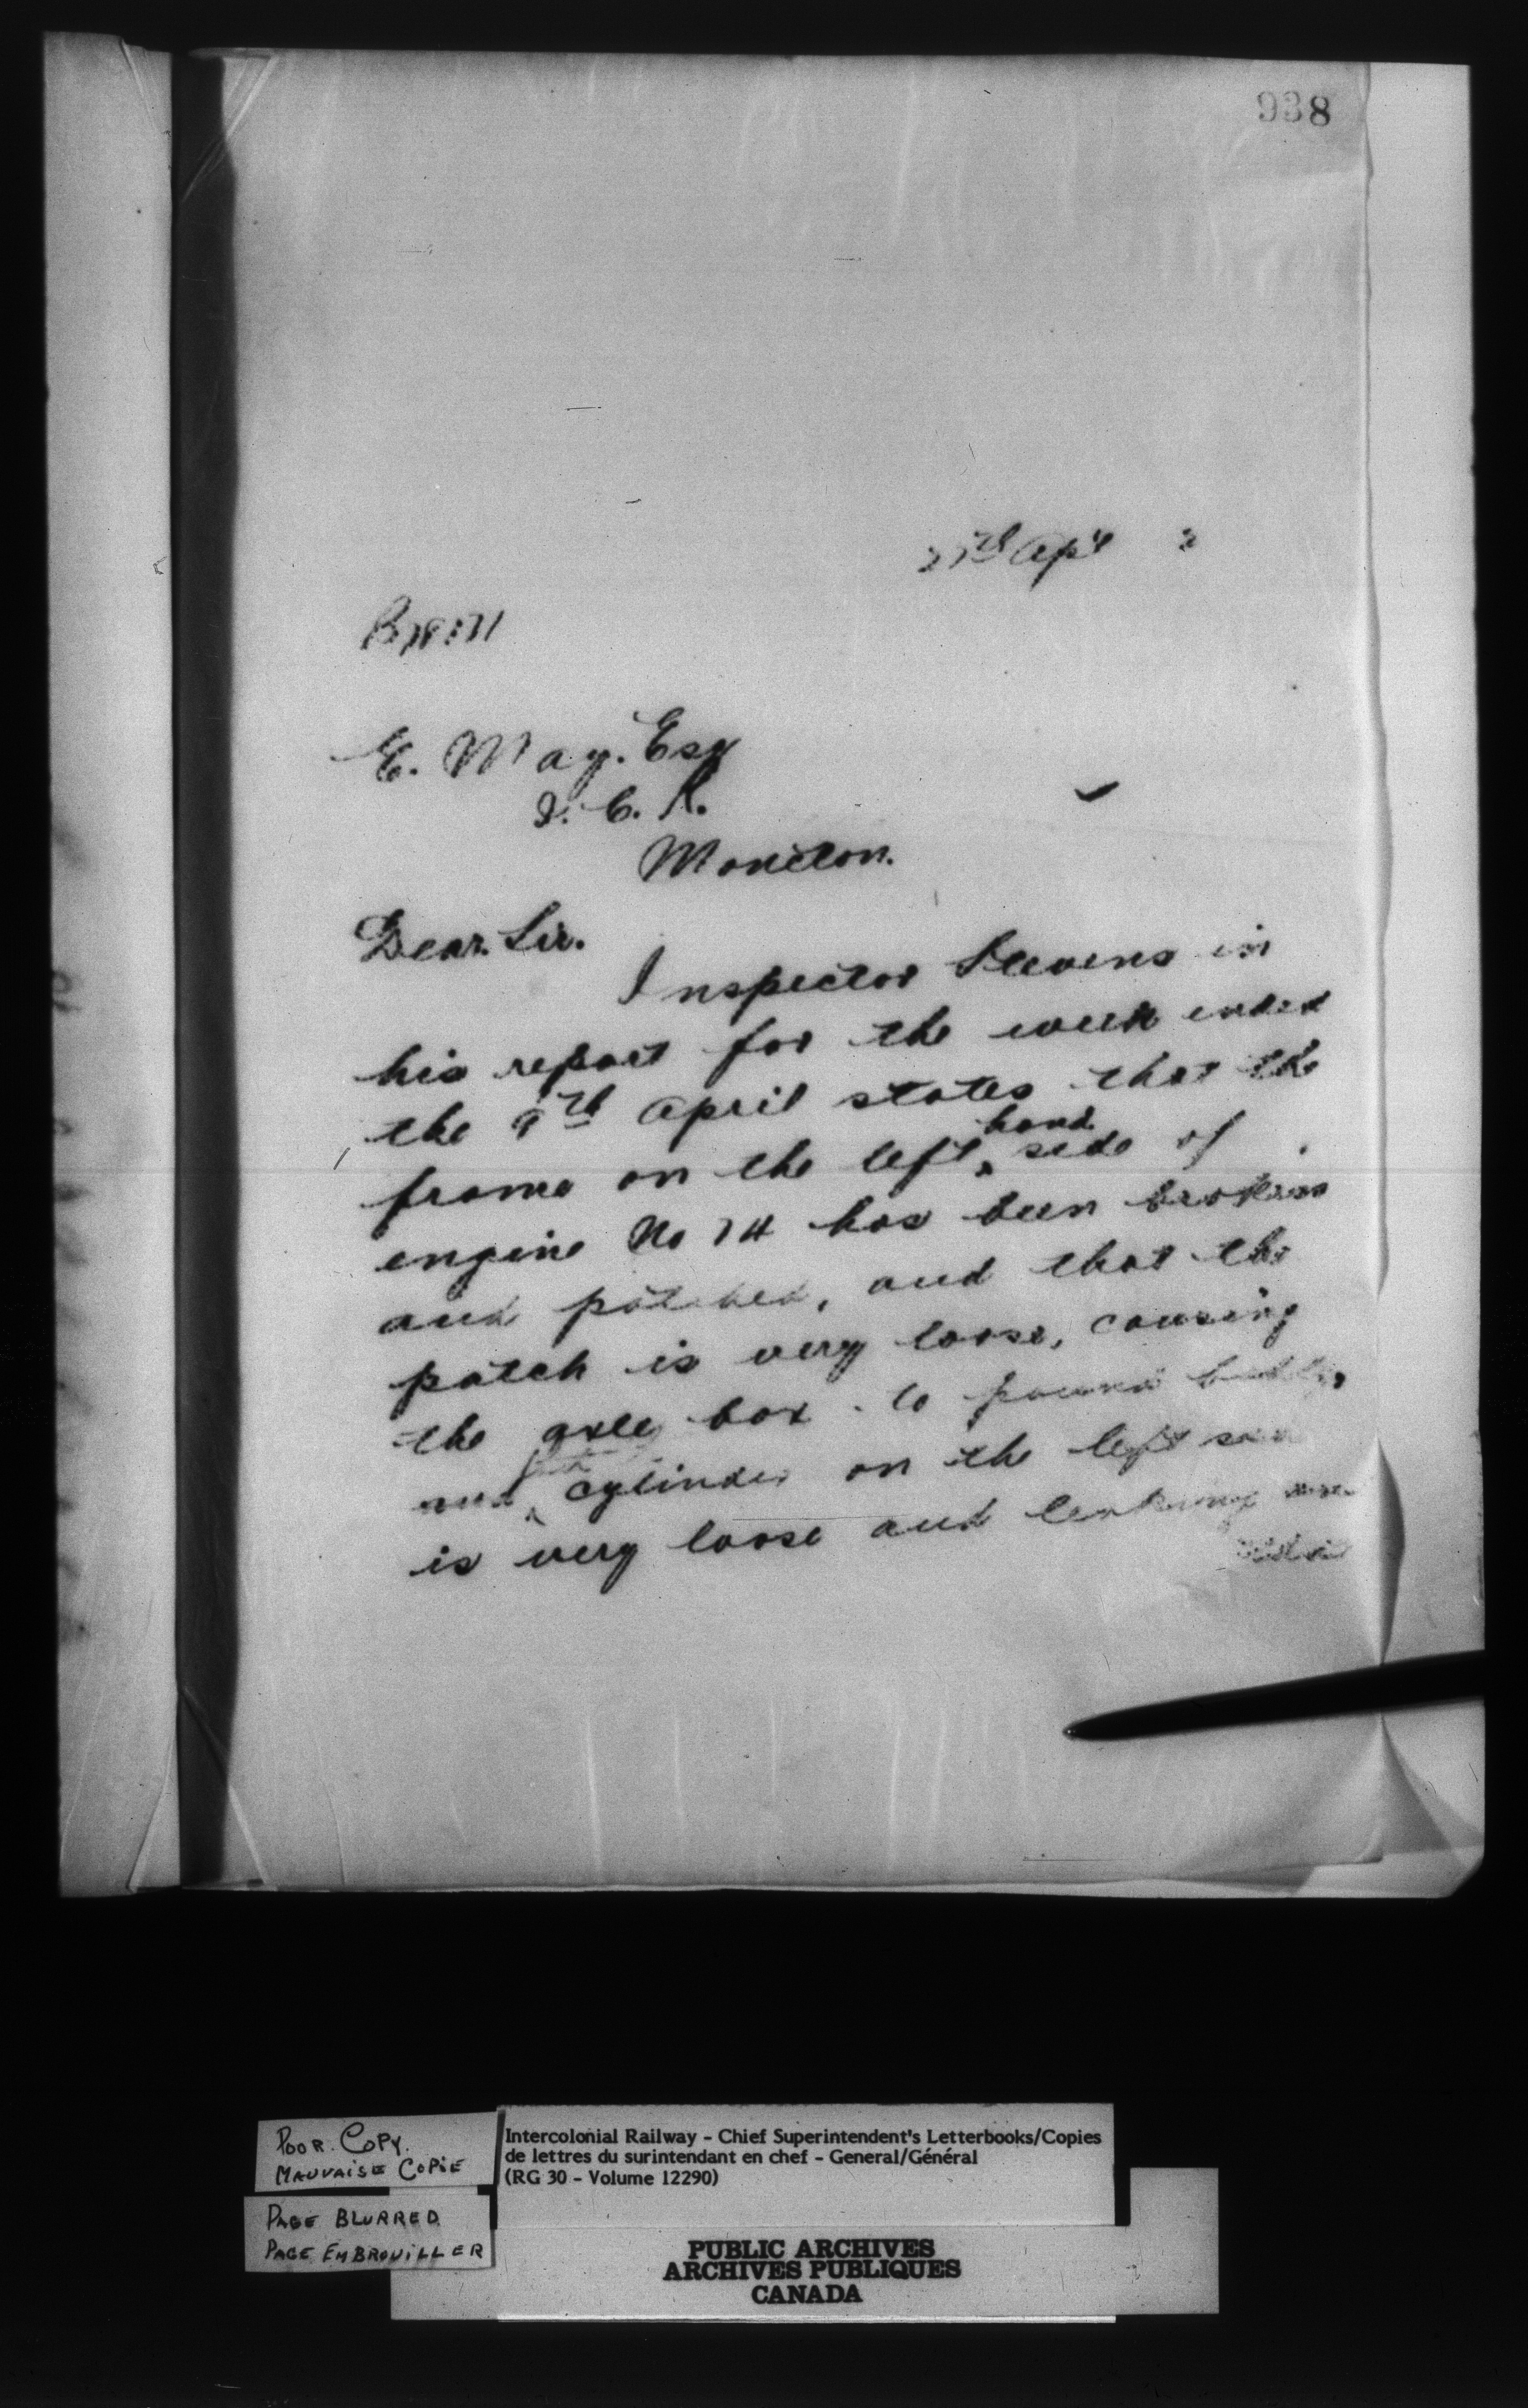 938
27th Apl 2
E. May. Esq
I. C. R.
Moncton.
Dear Sir.
Inspector Stevens in
his report for the week ended
the 9th April states that the
frame on the left hand side of
engine No 74 has been broken
and patched, and that the
patch is very loose, causing
the axle box to pound badly,
and cylinder on the left side
is very loose and leaking
POOR COPY.
MAUVAISE COPIE
PAGE BLURRED
PAGE EMBROUILLER
Intercolonial Railway - Chief Superintendent's Letterbooks/Copies
de lettres du surintendant en chef - General/Général
(RG 30 - Volume 12290)
PUBLIC ARCHIVES
ARCHIVES PUBLIQUES
CANADA